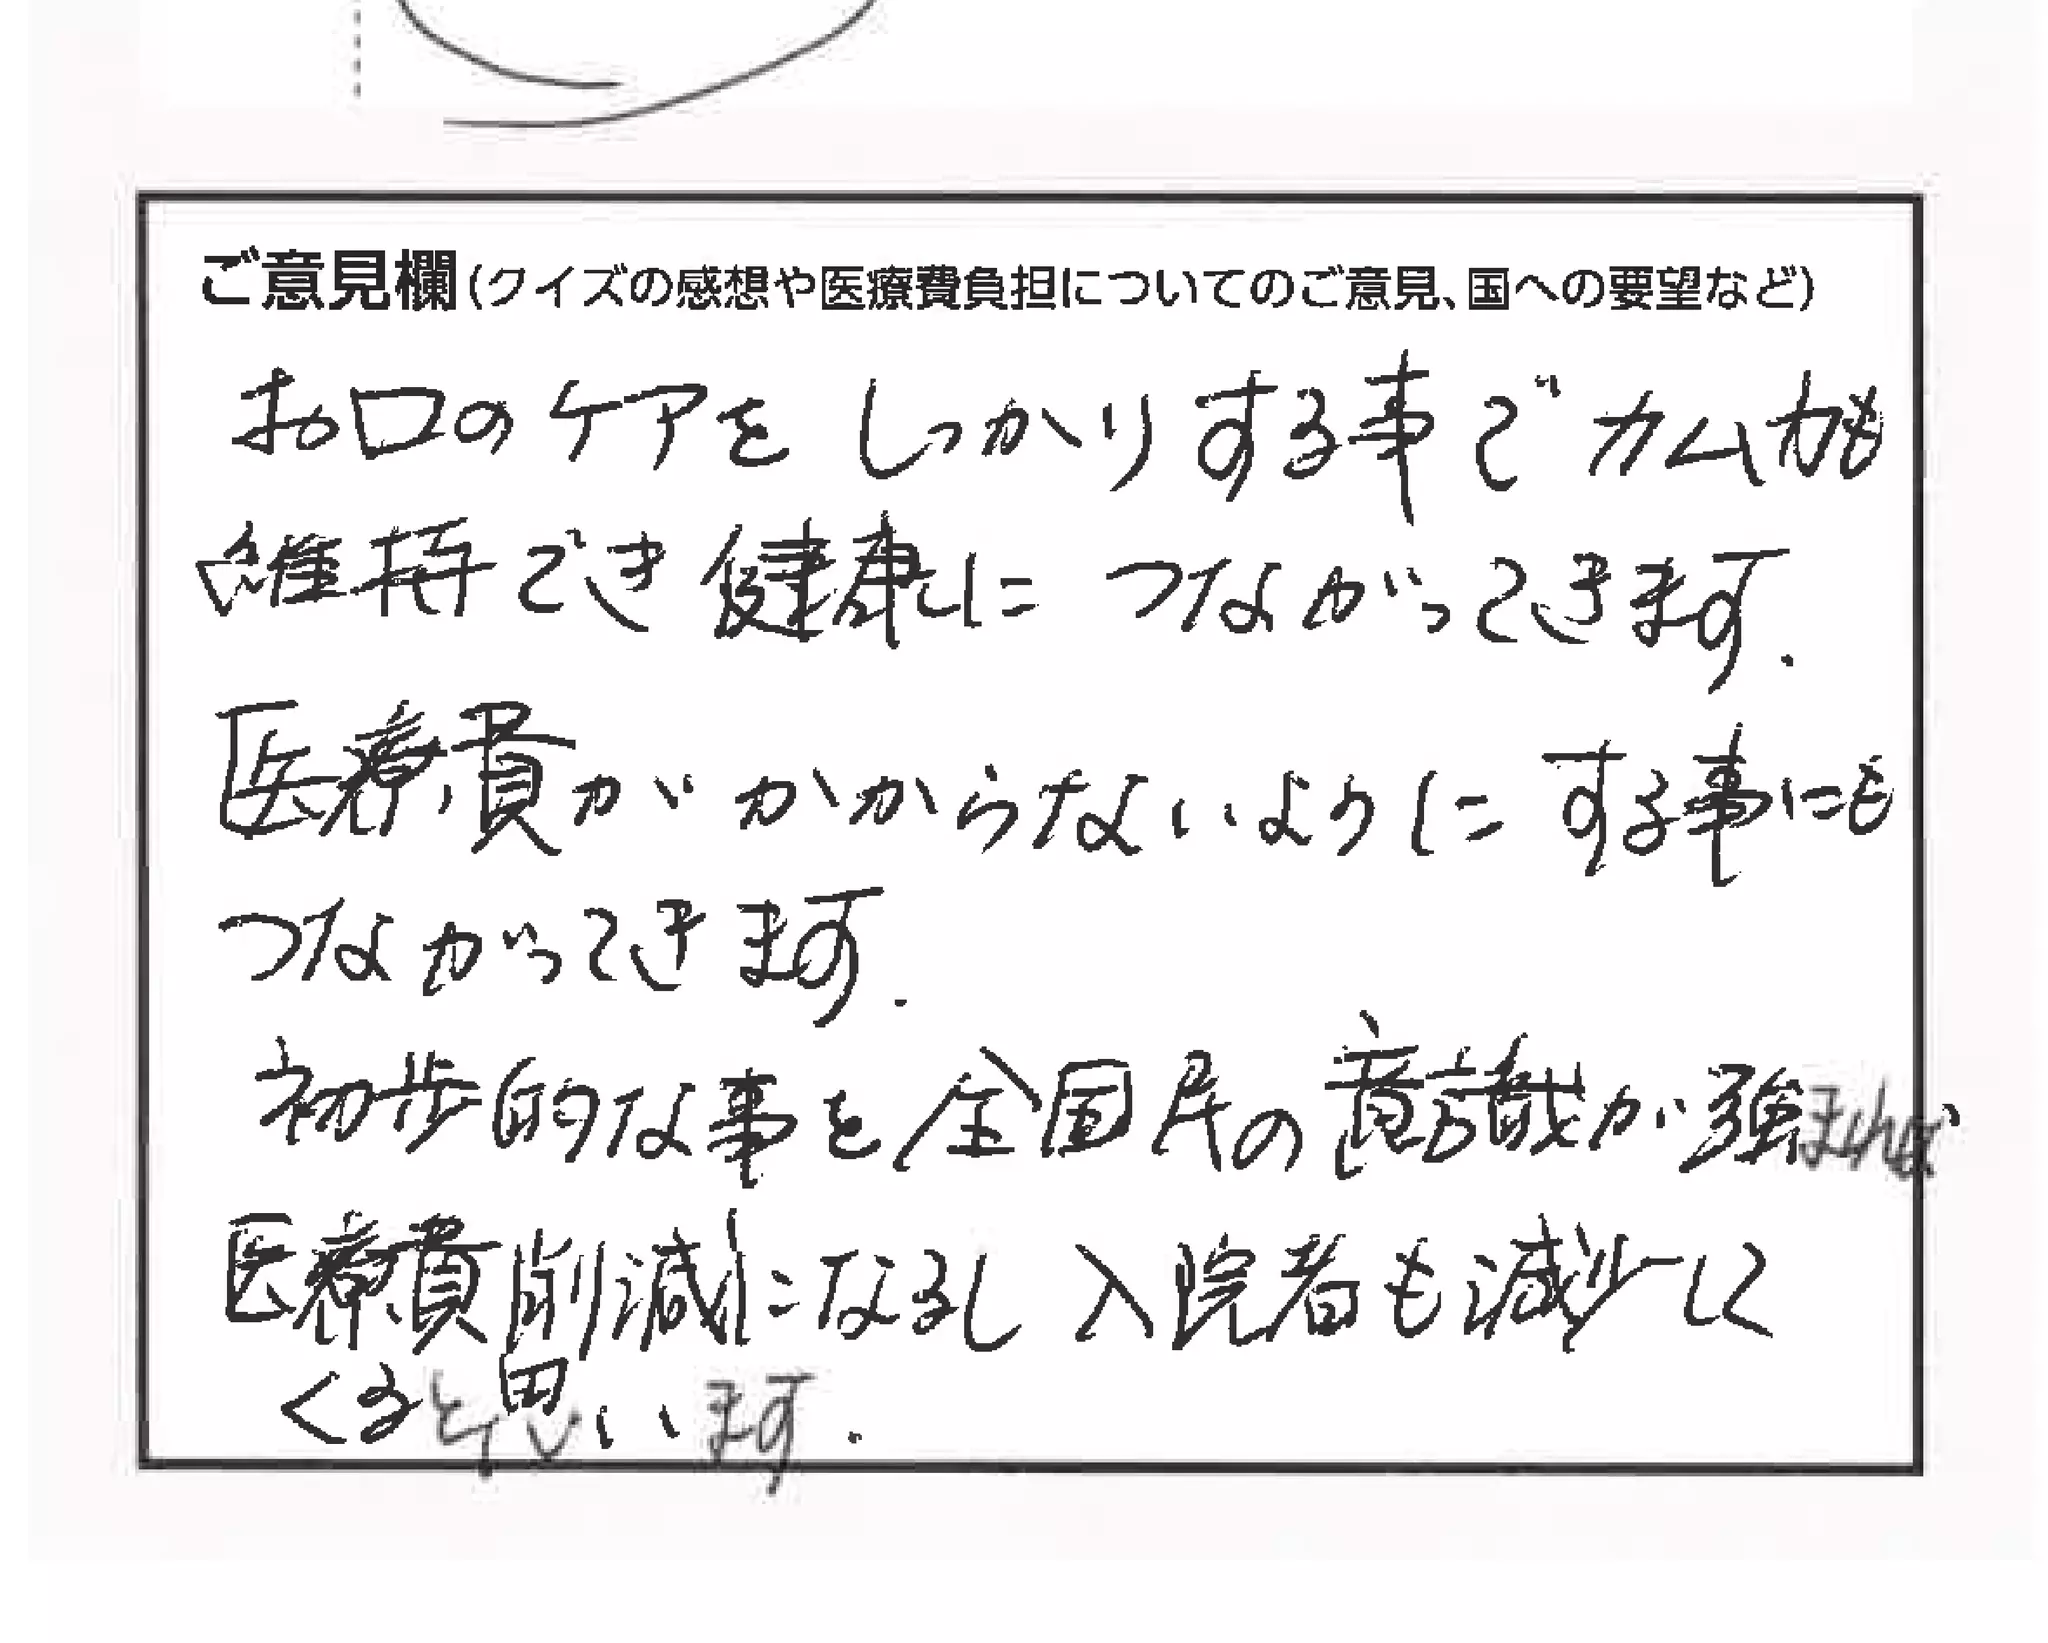 ご意見欄(クイズの感想や医療費負担についてのご意見、国への要望など)
お口のケアを しっかりする事で カム力も
維持でき 健康に つながってきます.
医療費が かからないように する事にも
つながってきます.
初歩的な事を全国民の意識が強まれば
医療費削減になるし 入院者も減少して
くると思います.